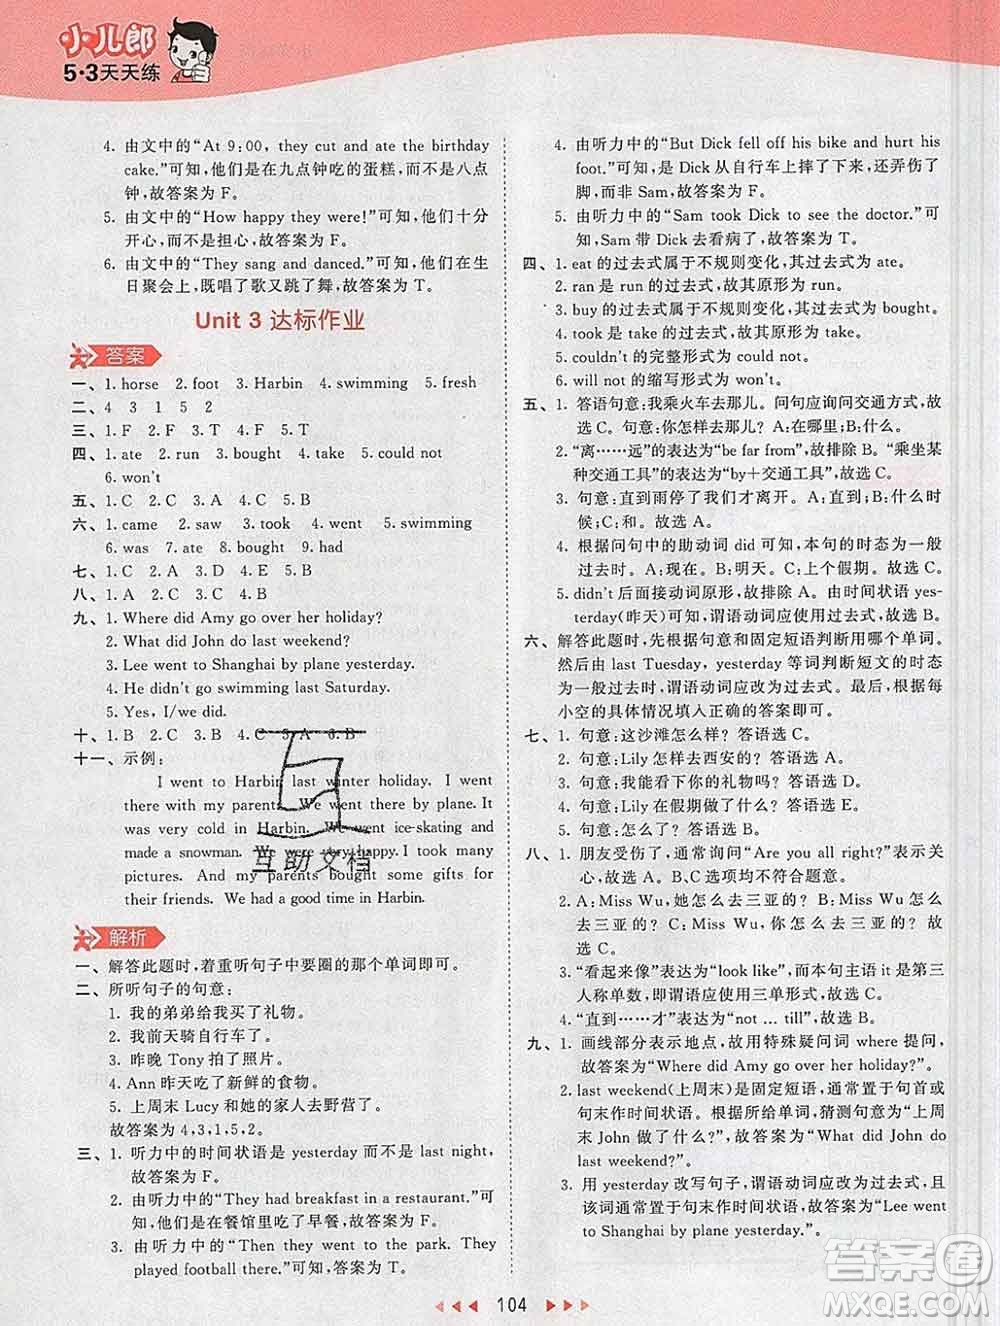 小儿郎
5·3天天练
4. 由文中的“At 9:00, they cut and ate the birthday
cake.”可知,他们是在九点钟吃的蛋糕,而不是八点
钟,故答案为 F。
5. 由文中的“How happy they were!”可知,他们十分
开心,而不是担心,故答案为 F。
6. 由文中的“They sang and danced.”可知,他们在生
日聚会上,既唱了歌又跳了舞,故答案为 T。
Unit 3 达标作业
答案
一、1. horse 2. foot 3. Harbin 4. swimming 5. fresh
二、4 3 1 5 2
三、1. F 2. F 3. T 4. F 5. T
四、1. ate 2. run 3. bought 4. take 5. could not
6. won't
五、1. C 2. C 3. A 4. C 5. B
六、1. came 2. saw 3. took 4. went 5. swimming
6. was 7. ate 8. bought 9. had
七、1. C 2. A 3. D 4. E 5. B
八、1. A 2. C 3. A 4. B
九、1. Where did Amy go over her holiday?
2. What did John do last weekend?
3. Lee went to Shanghai by plane yesterday.
4. He didn't go swimming last Saturday.
5. Yes, I/we did.
十、1. B 2. B 3. B 4. C 5. A 6. B
十一、示例:
I went to Harbin last winter holiday. I went
there with my parents. We went there by plane. It
was very cold in Harbin. We went ice-skating and
made a snowman. We were very happy. I took some
pictures. And my parents bought some gifts for
their friends. We had a good time in Harbin.
互助文档
解析
一、解答此题时,着重听句子中要圈的那个单词即可。
二、所听句子的句意:
1. 我的弟弟给我买了礼物。
2. 我前天骑自行车了。
3. 昨晚 Tony 拍了照片。
4. Ann 昨天吃了新鲜的食物。
5. 上周末 Lucy 和她的家人去野营了。
故答案为 4,3,1,5,2。
三、1. 听力中的时间状语是 yesterday 而不是 last night,
故答案为 F。
2. 由听力中的“They had breakfast in a restaurant.”可
知,他们是在餐馆里吃了早餐,故答案为 F。
3. 由听力中的“Then they went to the park. They
played football there.”可知,故答案为 T。
4. 由听力中的“But Dick fell off his bike and hurt his
foot.”可知,是 Dick 从自行车上摔了下来,还弄伤了
脚,而非 Sam,故答案为 F。
5. 由听力中的“Sam took Dick to see the doctor.”可
知,Sam 带 Dick 去看病了,故答案为 T。
四、1. eat 的过去式属于不规则变化,其过去式为 ate。
2. ran 是过去式,故其原形为 run。
3. buy 的过去式属于不规则变化,其过去式为 bought。
4. took 是 take 的过去式,故其原形为 take。
5. couldn't 的完整形式为 could not。
6. will not 的缩写形式为 won't。
五、1. 答语句意:我乘火车去那儿。问句应询问交通方式,故
选 C。句意:你怎样去那儿? A:在哪里;B:什么。
2.“离……远”的表达为“be far from”,故排除 B。“乘坐某
种交通工具”的表达为“by+交通工具”,故选 C。
3. 句意:直到雨停了我们才离开。A:直到;B:什么时
候;C:和。故选 A。
4. 根据问句中的助动词 did 可知,本句的时态为一般
过去时。A:明天。B:明天。C:上个假期。故选 C。
5. didn't 后面接动词原形,故排除 A。由时间状语 yes-
terday(昨天)可知,谓语动词应使用过去式,故选 B。
六、解答此题时,先根据句意和固定短语判断用哪个单词。
然后由 last Tuesday, yesterday 等词判断短文的时态
为一般过去时,谓语动词应改为过去式。最后,根据每
小空的具体情况填入正确的答案即可。
七、1. 句意:这沙滩怎么样? 答语选 C。
2. 句意:Lily 怎样去西安的? 答语选 A。
3. 句意:我能看下你的礼物吗? 答语选 D。
4. 句意:Lily 在假期做了什么? 答语选 E。
5. 句意:怎么了? 答语选 B。
八、1. 朋友受伤了,通常询问“Are you all right?”表示关
心,故选 A。B,C 选项均不符合题意。
2. A:Miss Wu,她怎么去三亚的? B:Miss Wu 怎么去
三亚的? C:Miss Wu,你怎么去三亚的? 故
选 C。
3.“看起来像”表达为“look like”,而本句主语 it 是第三
人称单数,此时谓语应使用三单形式,故选 A。
4.“直到……才”表达为“not … till”,故选 B。
九、1. 画线部分表示地点,故用特殊疑问词 where 提问,
故答案为“Where did Amy go over her holiday?”。
2. last weekend(上周末)是固定短语,通常置于句首或
句末作时间状语。根据所给单词,猜测句意为“上周
末 John 做了什么?”,故答案为“What did John do
last weekend?”。
3. 用 yesterday 改写句子,谓语动词应改为过去式,且
该词通常置于句末作时间状语,故答案为“Lee went
to Shanghai by plane yesterday.”。
104
答案圈
MXQE.COM